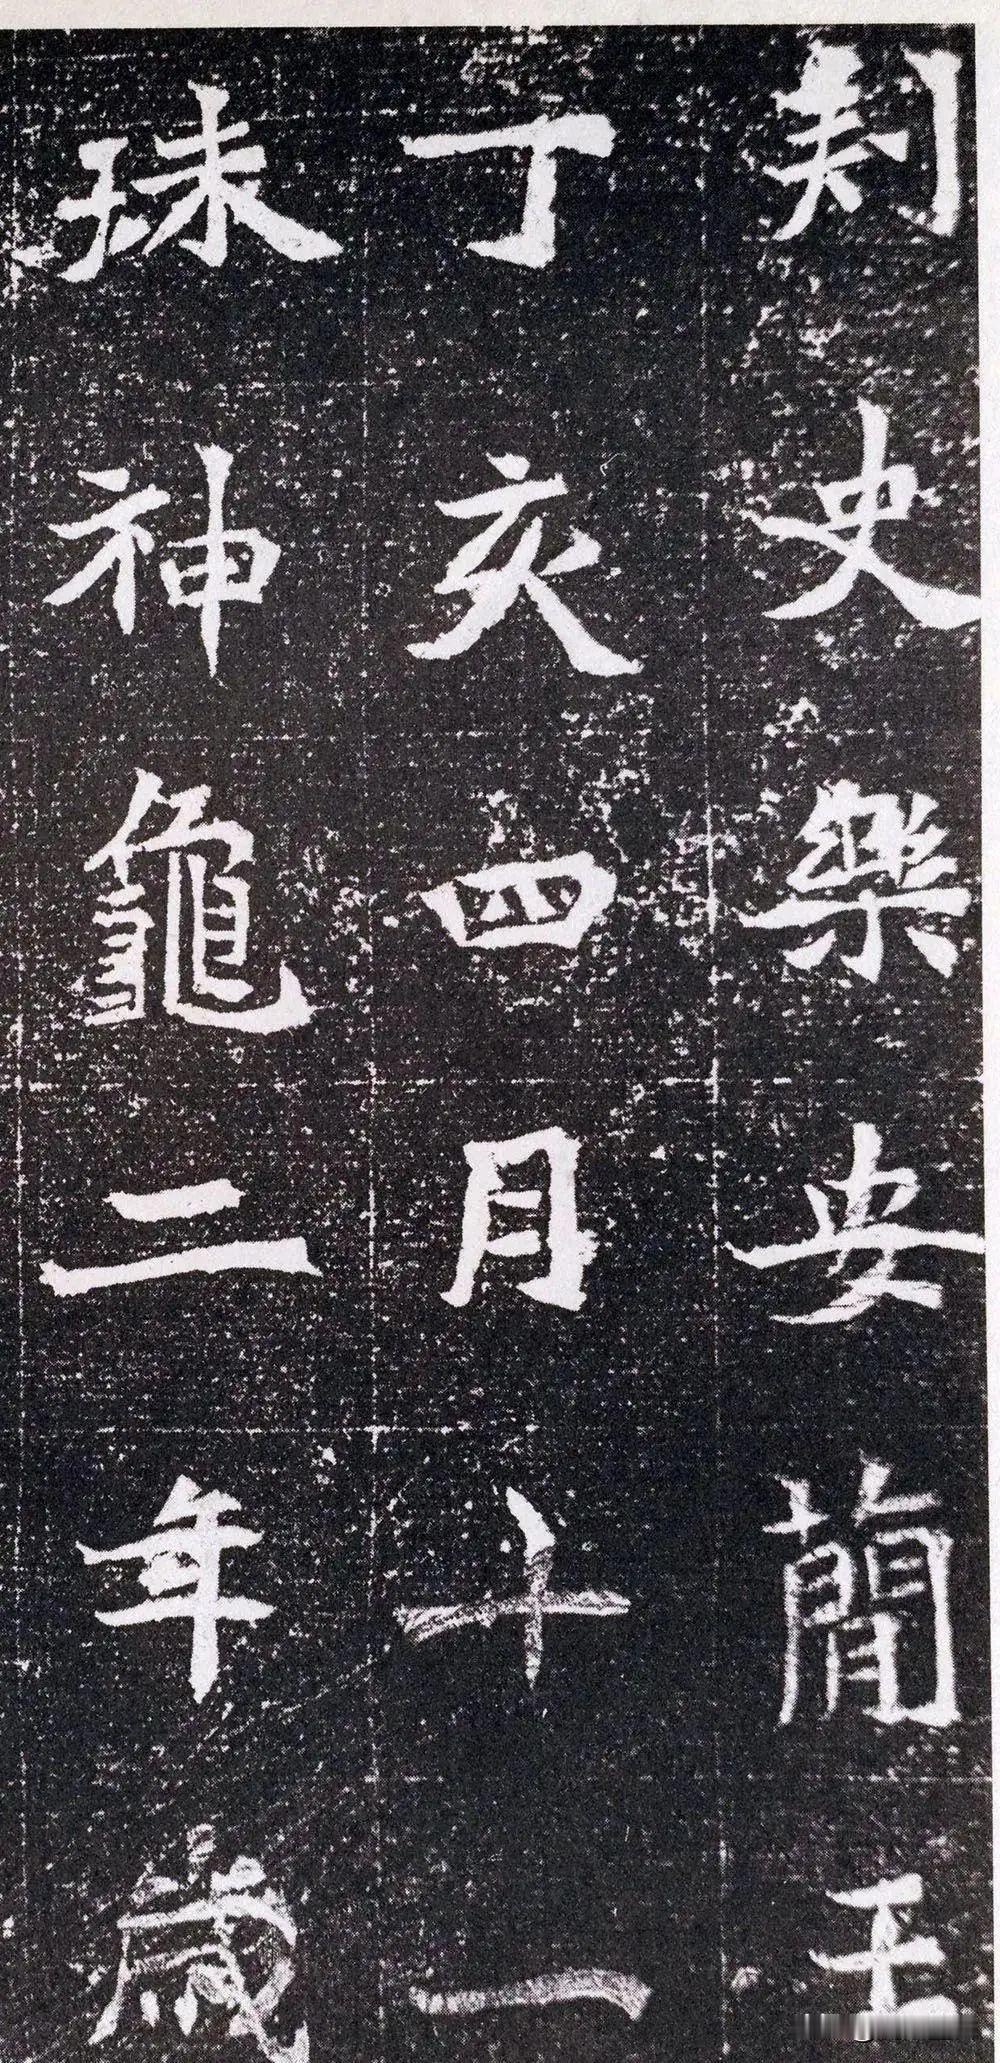 刺史樂安簡王
丁亥四月十一
珠神龜二年歲